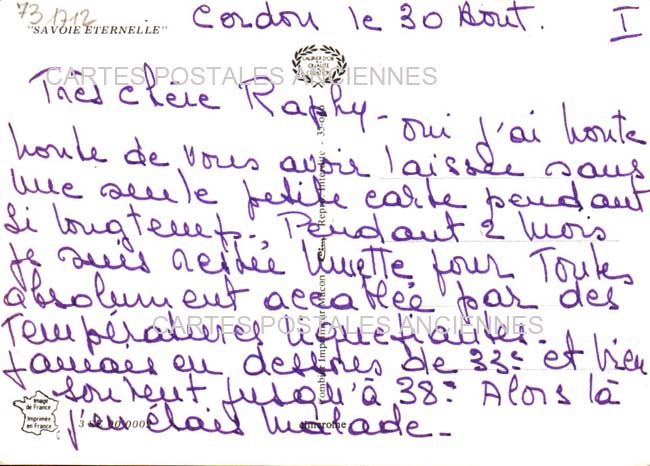 73 1712
"SAVOIE ETERNELLE"
Cordon le 30 Aout.
I
CARTES POSTALES ANCIENNES
Très chère Raphy -
oui j'ai honte
honte de vous avoir laissée sans
une seule petite carte pendant
si longtemps. Pendant 2 mois
je suis restée muette pour Toutes
absolument accablée par des
Températures liquéfiantes.
CARTES POSTALES ANCIENNES
Jamais en dessous de 33° et bien
souvent jusqu'à 38° Alors là
j'en étais malade -
Image
de France
Imprimée
en France